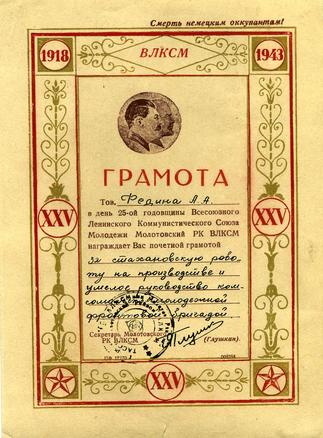 Смерть немецким оккупантам!
1918 ВЛКСМ 1943
ГРАМОТА
Тов. Федина А. А.
в день 25-ой годовщины Всесоюзного
Ленинского Коммунистического Союза
Молодежи Молотовский РК ВЛКСМ
награждает Вас почетной грамотой
за стахановскую рабо
ту на производстве и
умелое руководство ком-
сомольско-молодежной
фронтовой бригадой
XXV XXV
Секретарь Молотовского
РК ВЛКСМ
(Глушкин).
XXV